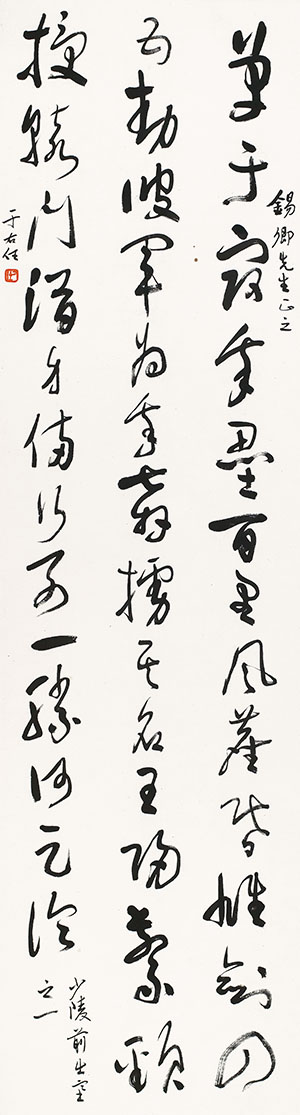 單于寇我壘百里風塵昏雄劍四
錫卿先生正之
五動彼軍為我奔擄其名王歸繫頸
授轅門潛身備行列一勝何足論
少陵前出塞
之一
于右任